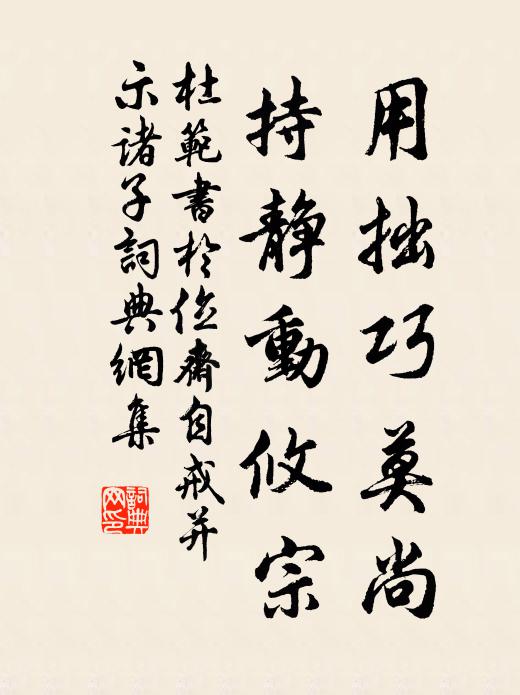 用拙巧莫尚
持静動攸宗
杜範書於位齋自戒并
示诸子詞典網集
詞典網印